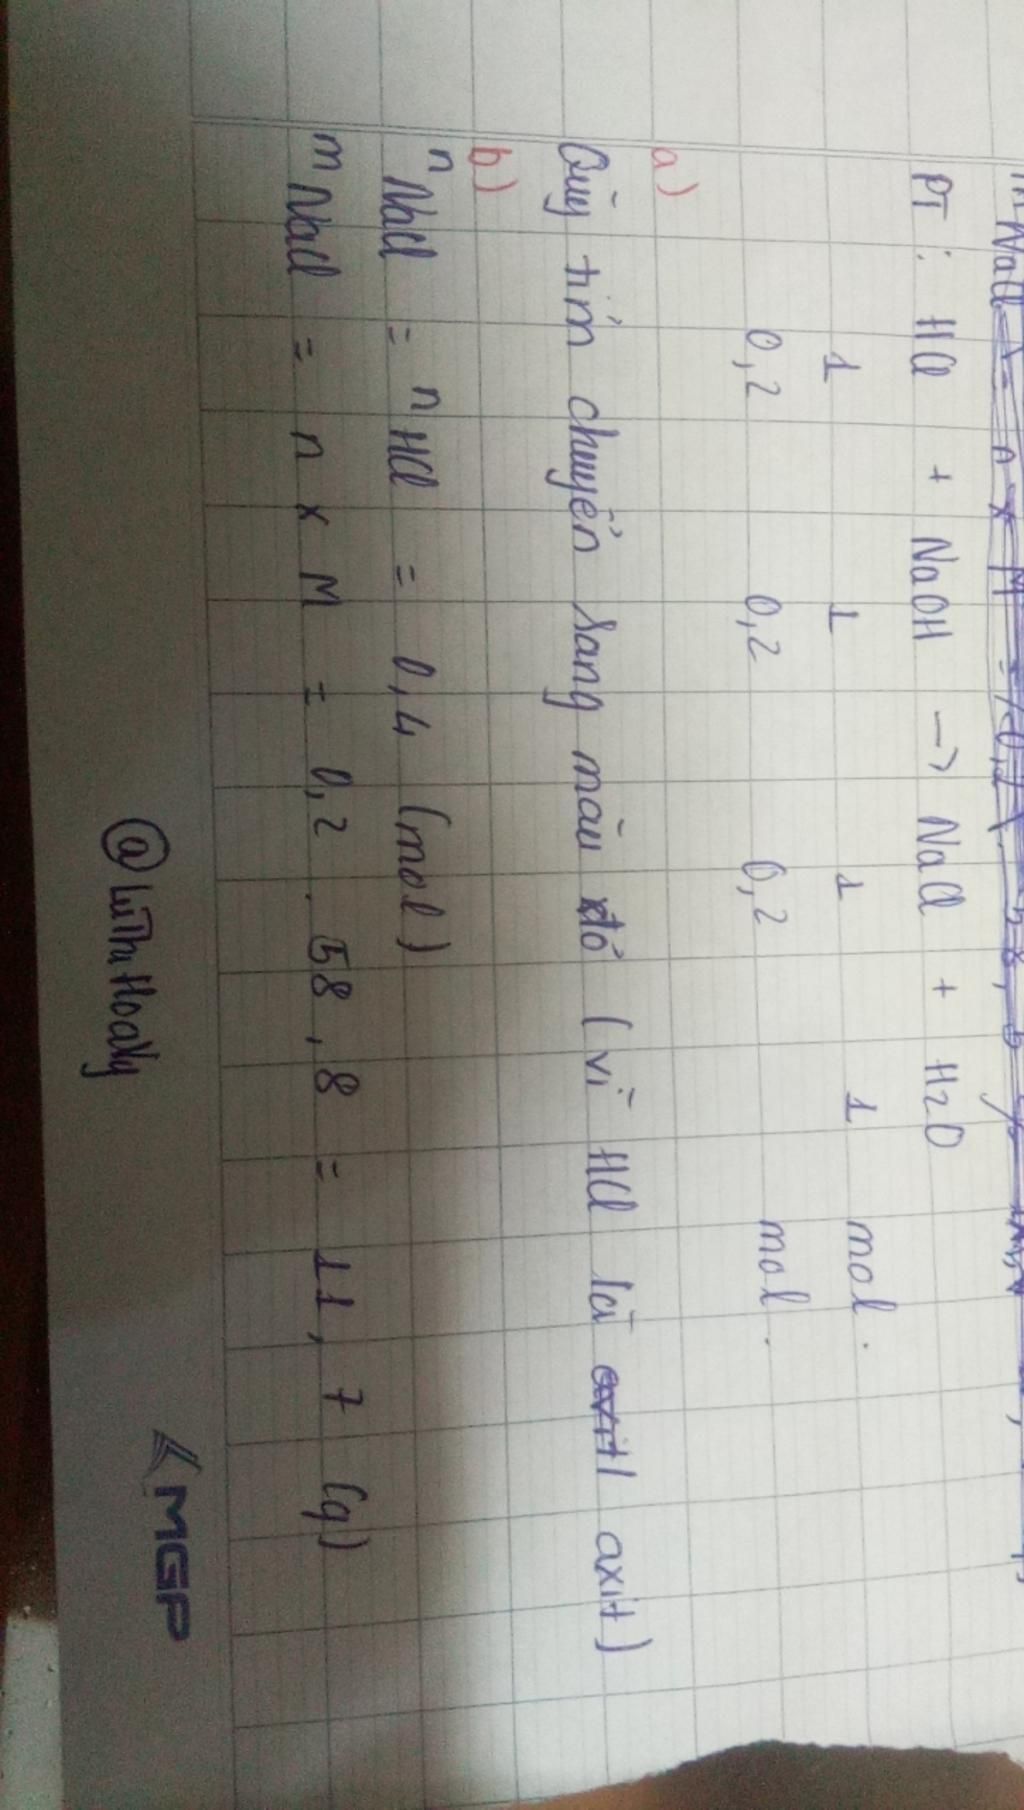 PT : HCl + NaOH → NaCl + H2O
1 1 1 1 mol.
0,2 0,2 0,2 mol.
a)
Qùy tím chuyển sang màu đỏ (vì HCl là axit)
b)
nNaCl = nHCl = 0,4 (mol)
mNaCl = n x M = 0,2 . 58,8 = 11,7 (g)
MGP